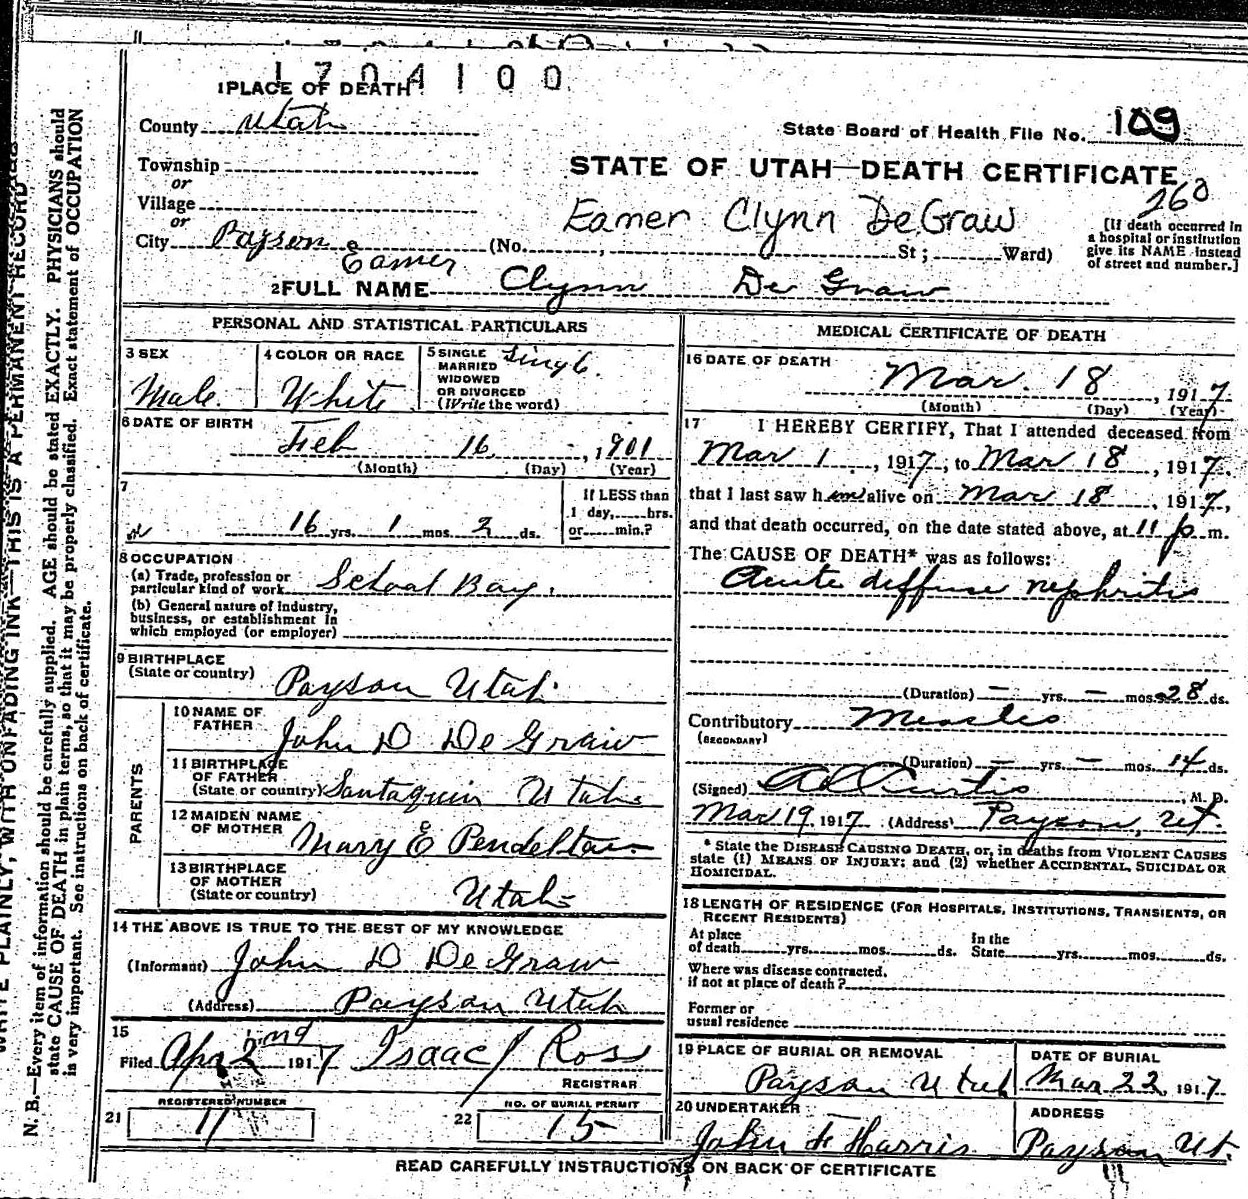 1704100
1 PLACE OF DEATH
County Utah
State Board of Health File No. 109
Township
or
Village
or
City Payson
STATE OF UTAH—DEATH CERTIFICATE
260
Eamer Clynn DeGraw
(No. , St; Ward)
[If death occurred in a hospital or institution give its NAME instead of street and number.]
Eamer
2 FULL NAME Clynn De Graw
PERSONAL AND STATISTICAL PARTICULARS
3 SEX
Male
4 COLOR OR RACE
White
5 SINGLE
MARRIED
WIDOWED
OR DIVORCED
(Write the word)
Single.
6 DATE OF BIRTH
Feb 16, 1901
(Month) (Day) (Year)
7
16 yrs. 1 mos. 2 ds.
If LESS than
1 day, hrs.
or min.?
8 OCCUPATION
(a) Trade, profession or
particular kind of work School Boy.
(b) General nature of industry,
business, or establishment in
which employed (or employer)
9 BIRTHPLACE
(State or country) Payson Utah
PARENTS
10 NAME OF
FATHER John D DeGraw
11 BIRTHPLACE
OF FATHER
(State or country) Santaquin Utah
12 MAIDEN NAME
OF MOTHER Mary E Pendelton
13 BIRTHPLACE
OF MOTHER
(State or country) Utah
14 THE ABOVE IS TRUE TO THE BEST OF MY KNOWLEDGE
(Informant) John D DeGraw
(Address) Payson Utah
15
Filed Apr 2nd 1917 Isaac Ross
REGISTRAR
REGISTERED NUMBER
21 11
NO. OF BURIAL PERMIT
22 15
MEDICAL CERTIFICATE OF DEATH
16 DATE OF DEATH
Mar. 18, 1917
(Month) (Day) (Year)
17 I HEREBY CERTIFY, That I attended deceased from
Mar 1, 1917; to Mar 18, 1917.
that I last saw him alive on Mar 18, 1917,
and that death occurred, on the date stated above, at 11 p m.
The CAUSE OF DEATH* was as follows:
Acute diffuse nephritis
(Duration) — yrs. — mos. 28 ds.
Contributory Measles
(SECONDARY)
(Duration) — yrs. — mos. 14 ds.
(Signed) A D Curtis, M. D.
Mar 19, 1917 (Address) Payson, Ut.
* State the DISEASE CAUSING DEATH, or, in deaths from VIOLENT CAUSES
state (1) MEANS OF INJURY; and (2) whether ACCIDENTAL, SUICIDAL OR
HOMICIDAL.
18 LENGTH OF RESIDENCE (FOR HOSPITALS, INSTITUTIONS, TRANSIENTS, OR
RECENT RESIDENTS)
At place
of death yrs. mos. ds.
In the
State yrs. mos. ds.
Where was disease contracted,
if not at place of death?
Former or
usual residence
19 PLACE OF BURIAL OR REMOVAL
Payson Utah
DATE OF BURIAL
Mar 22, 1917
20 UNDERTAKER
John F Harris
ADDRESS
Payson Ut.
READ CAREFULLY INSTRUCTIONS ON BACK OF CERTIFICATE
WRITE PLAINLY, WITH UNFADING INK—THIS IS A PERMANENT RECORD
N. B.—Every item of information should be carefully supplied. AGE should be stated EXACTLY. PHYSICIANS should
state CAUSE OF DEATH in plain terms, so that it may be properly classified. Exact statement of OCCUPATION
is very important. See instructions on back of certificate.